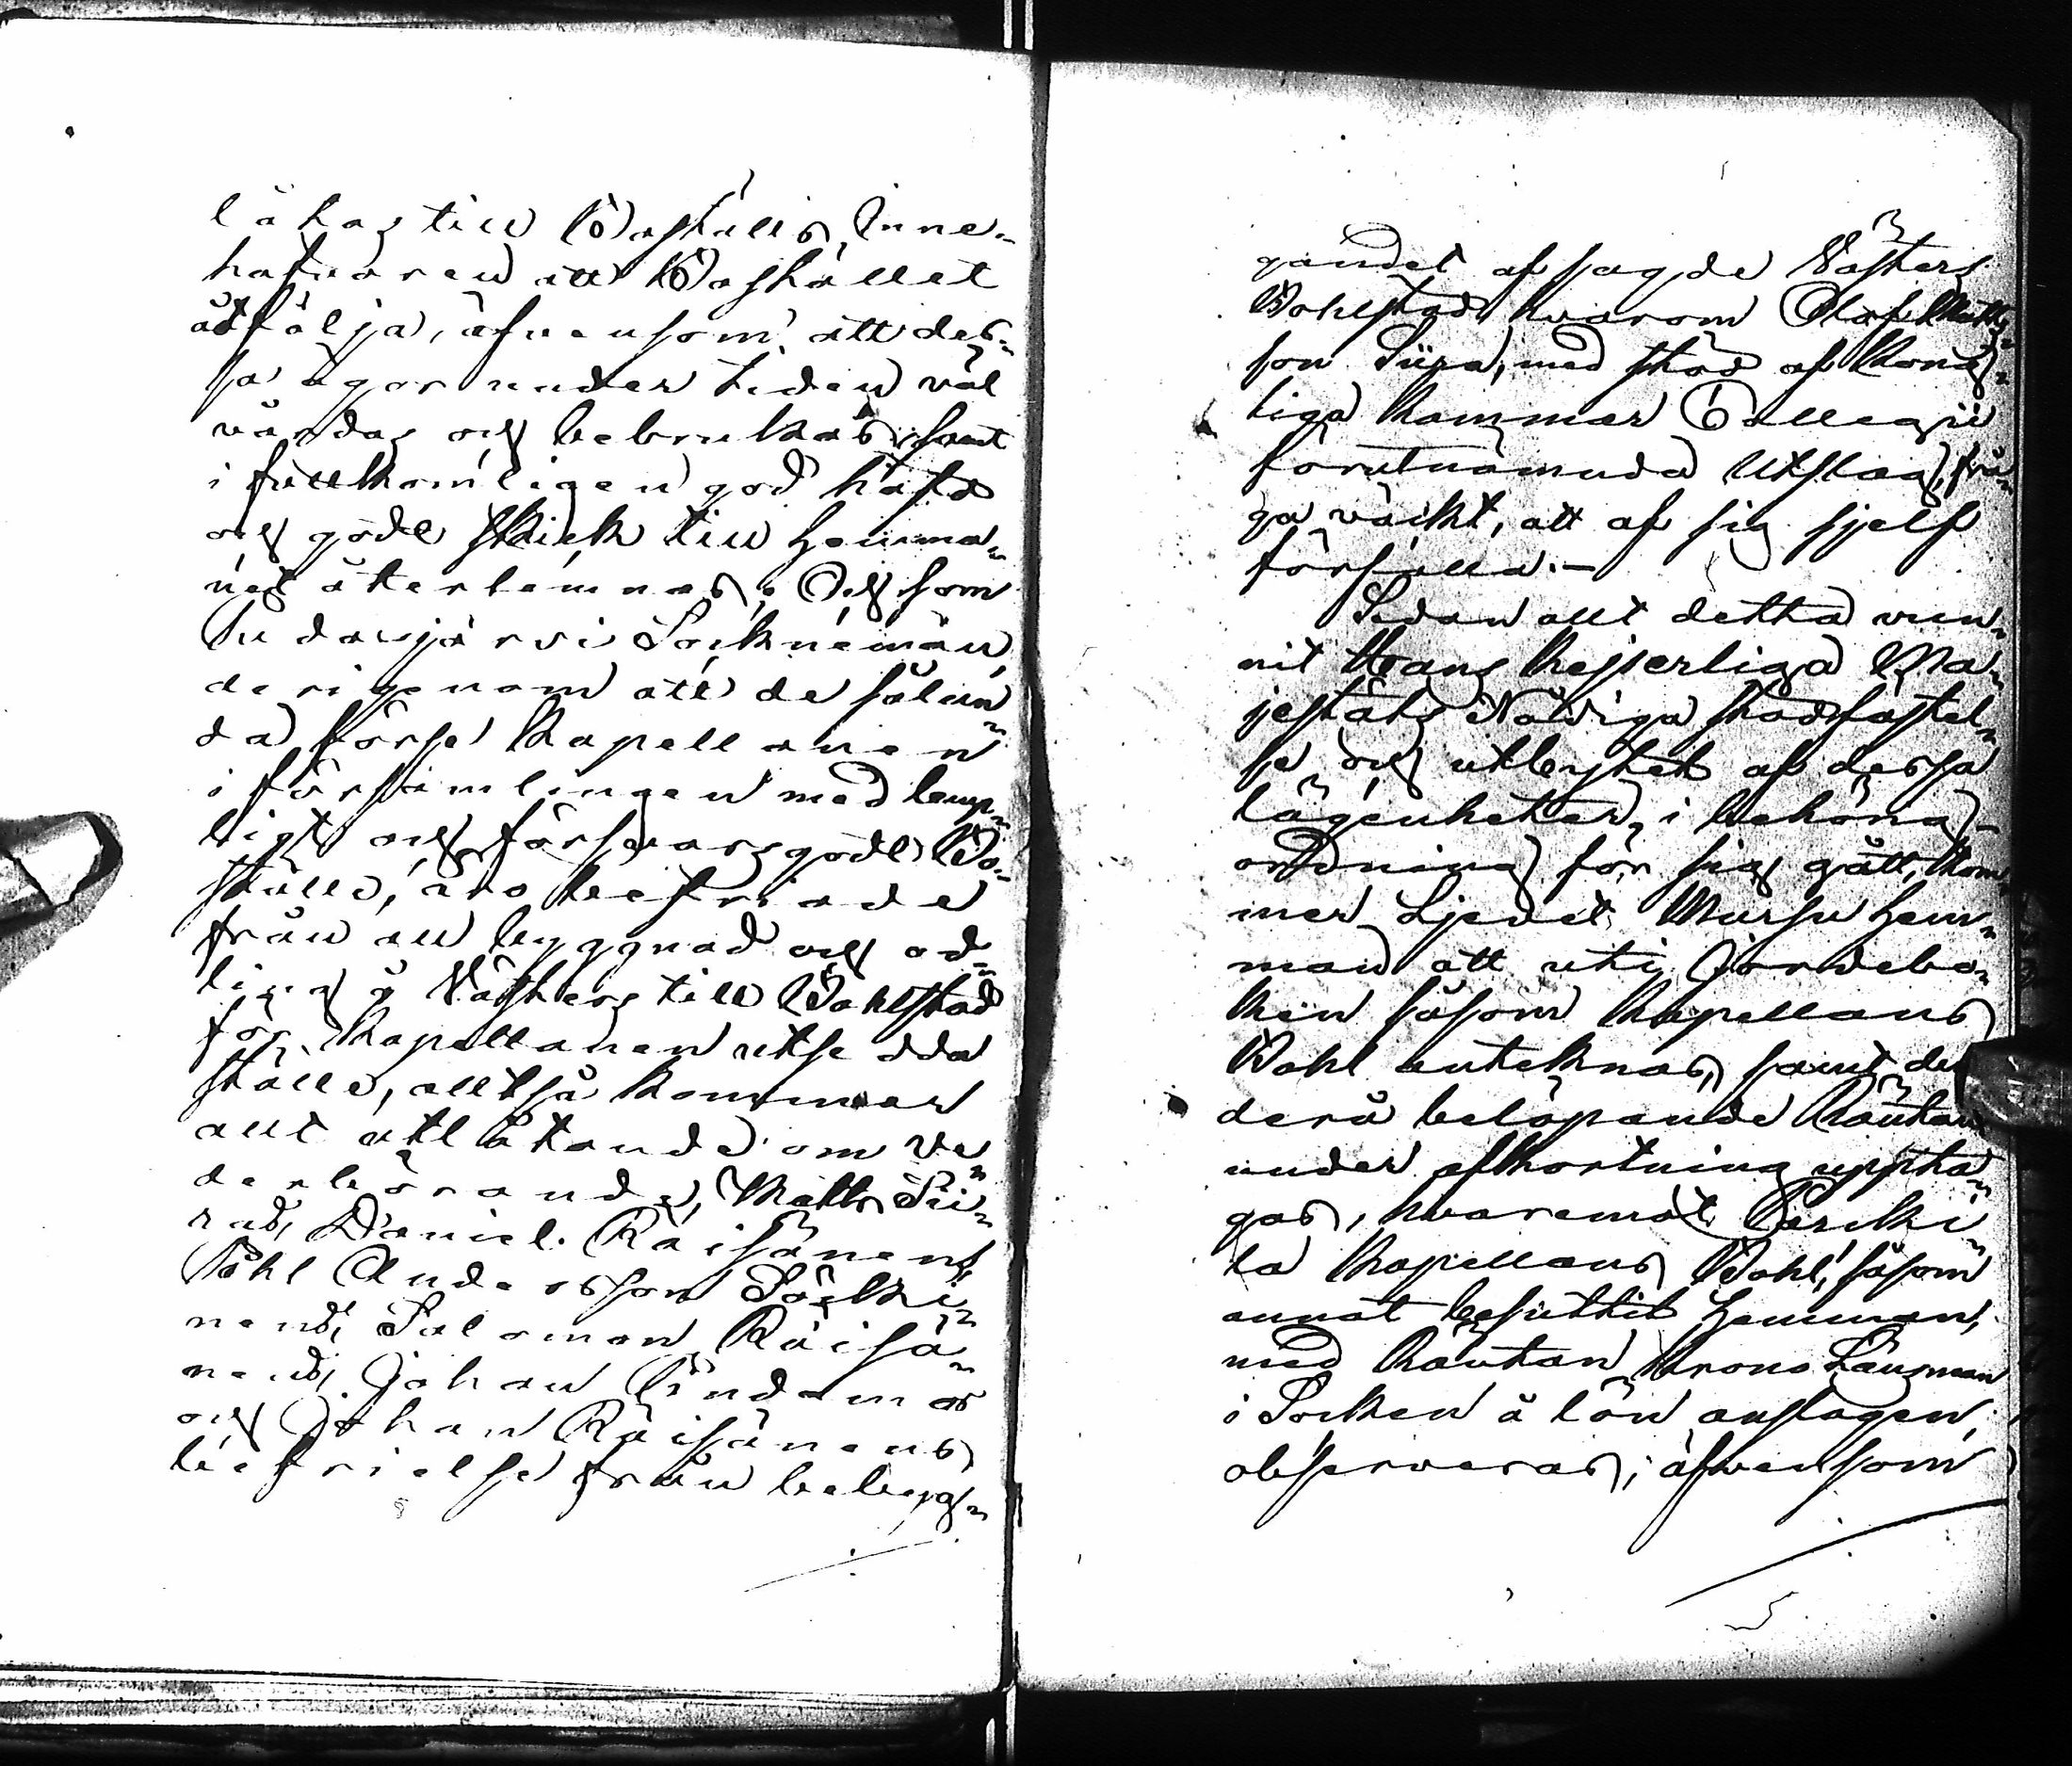 låtas till Boställs Inne-
hafvaren att Boställlet
åtfölja, äfvensom att des-
sa ägor under tiden väl
vårdas och bebrukas samt
i fullkomligen god häfd
och godt skick till Hemma-
net återlemnas; Och som
Pudasjärvi Socknemän,
derigenom att de sålun-
da förse Kapellanen
i församlingen med lemp-
ligt och försvarsgodt Bo-
ställe, äro befriade
från all byggnad och od-
ling å Västers till Bohlstad
för Kapellanen utsedda
ställe, alltså kommer
allt utlåtande om ve-
derbörande, Matts Sii-
ras, Daniel Räisänens,
Påhl Andersson Särki-
nens, Salomon Räisä-
nens, Johan Lindams
och Johan Räisänens
befrielse från belägg-
gandet af sagde Västers
Bohlstad, hvarom Olof Matts-
son Siira, med stöd af Kong-
liga Kammar Collegii
förutnämnda Utslag, frå-
ga väckt, att af sig sjelf
förfalla.-
Sedan allt detta vun-
nit Hans Kejserliga Ma-
jestäts Nådiga stadfästel-
se och utbytet af dessa
lägenheter i behörig
ordning för sig gått, kom-
mer Ljedet Mursu Hem-
man att uti Jordebo-
ken såsom Kapellans
Bohl antecknas, samt den
derå belöpande Räntan
under afkortning uppta-
gas, hvaremot
ta Kapellans Bohl, såsom
annat besuttit Hemman,
med Räntan Krono Länsman
i Socken å lön anslagen,
observeras; äfvensom